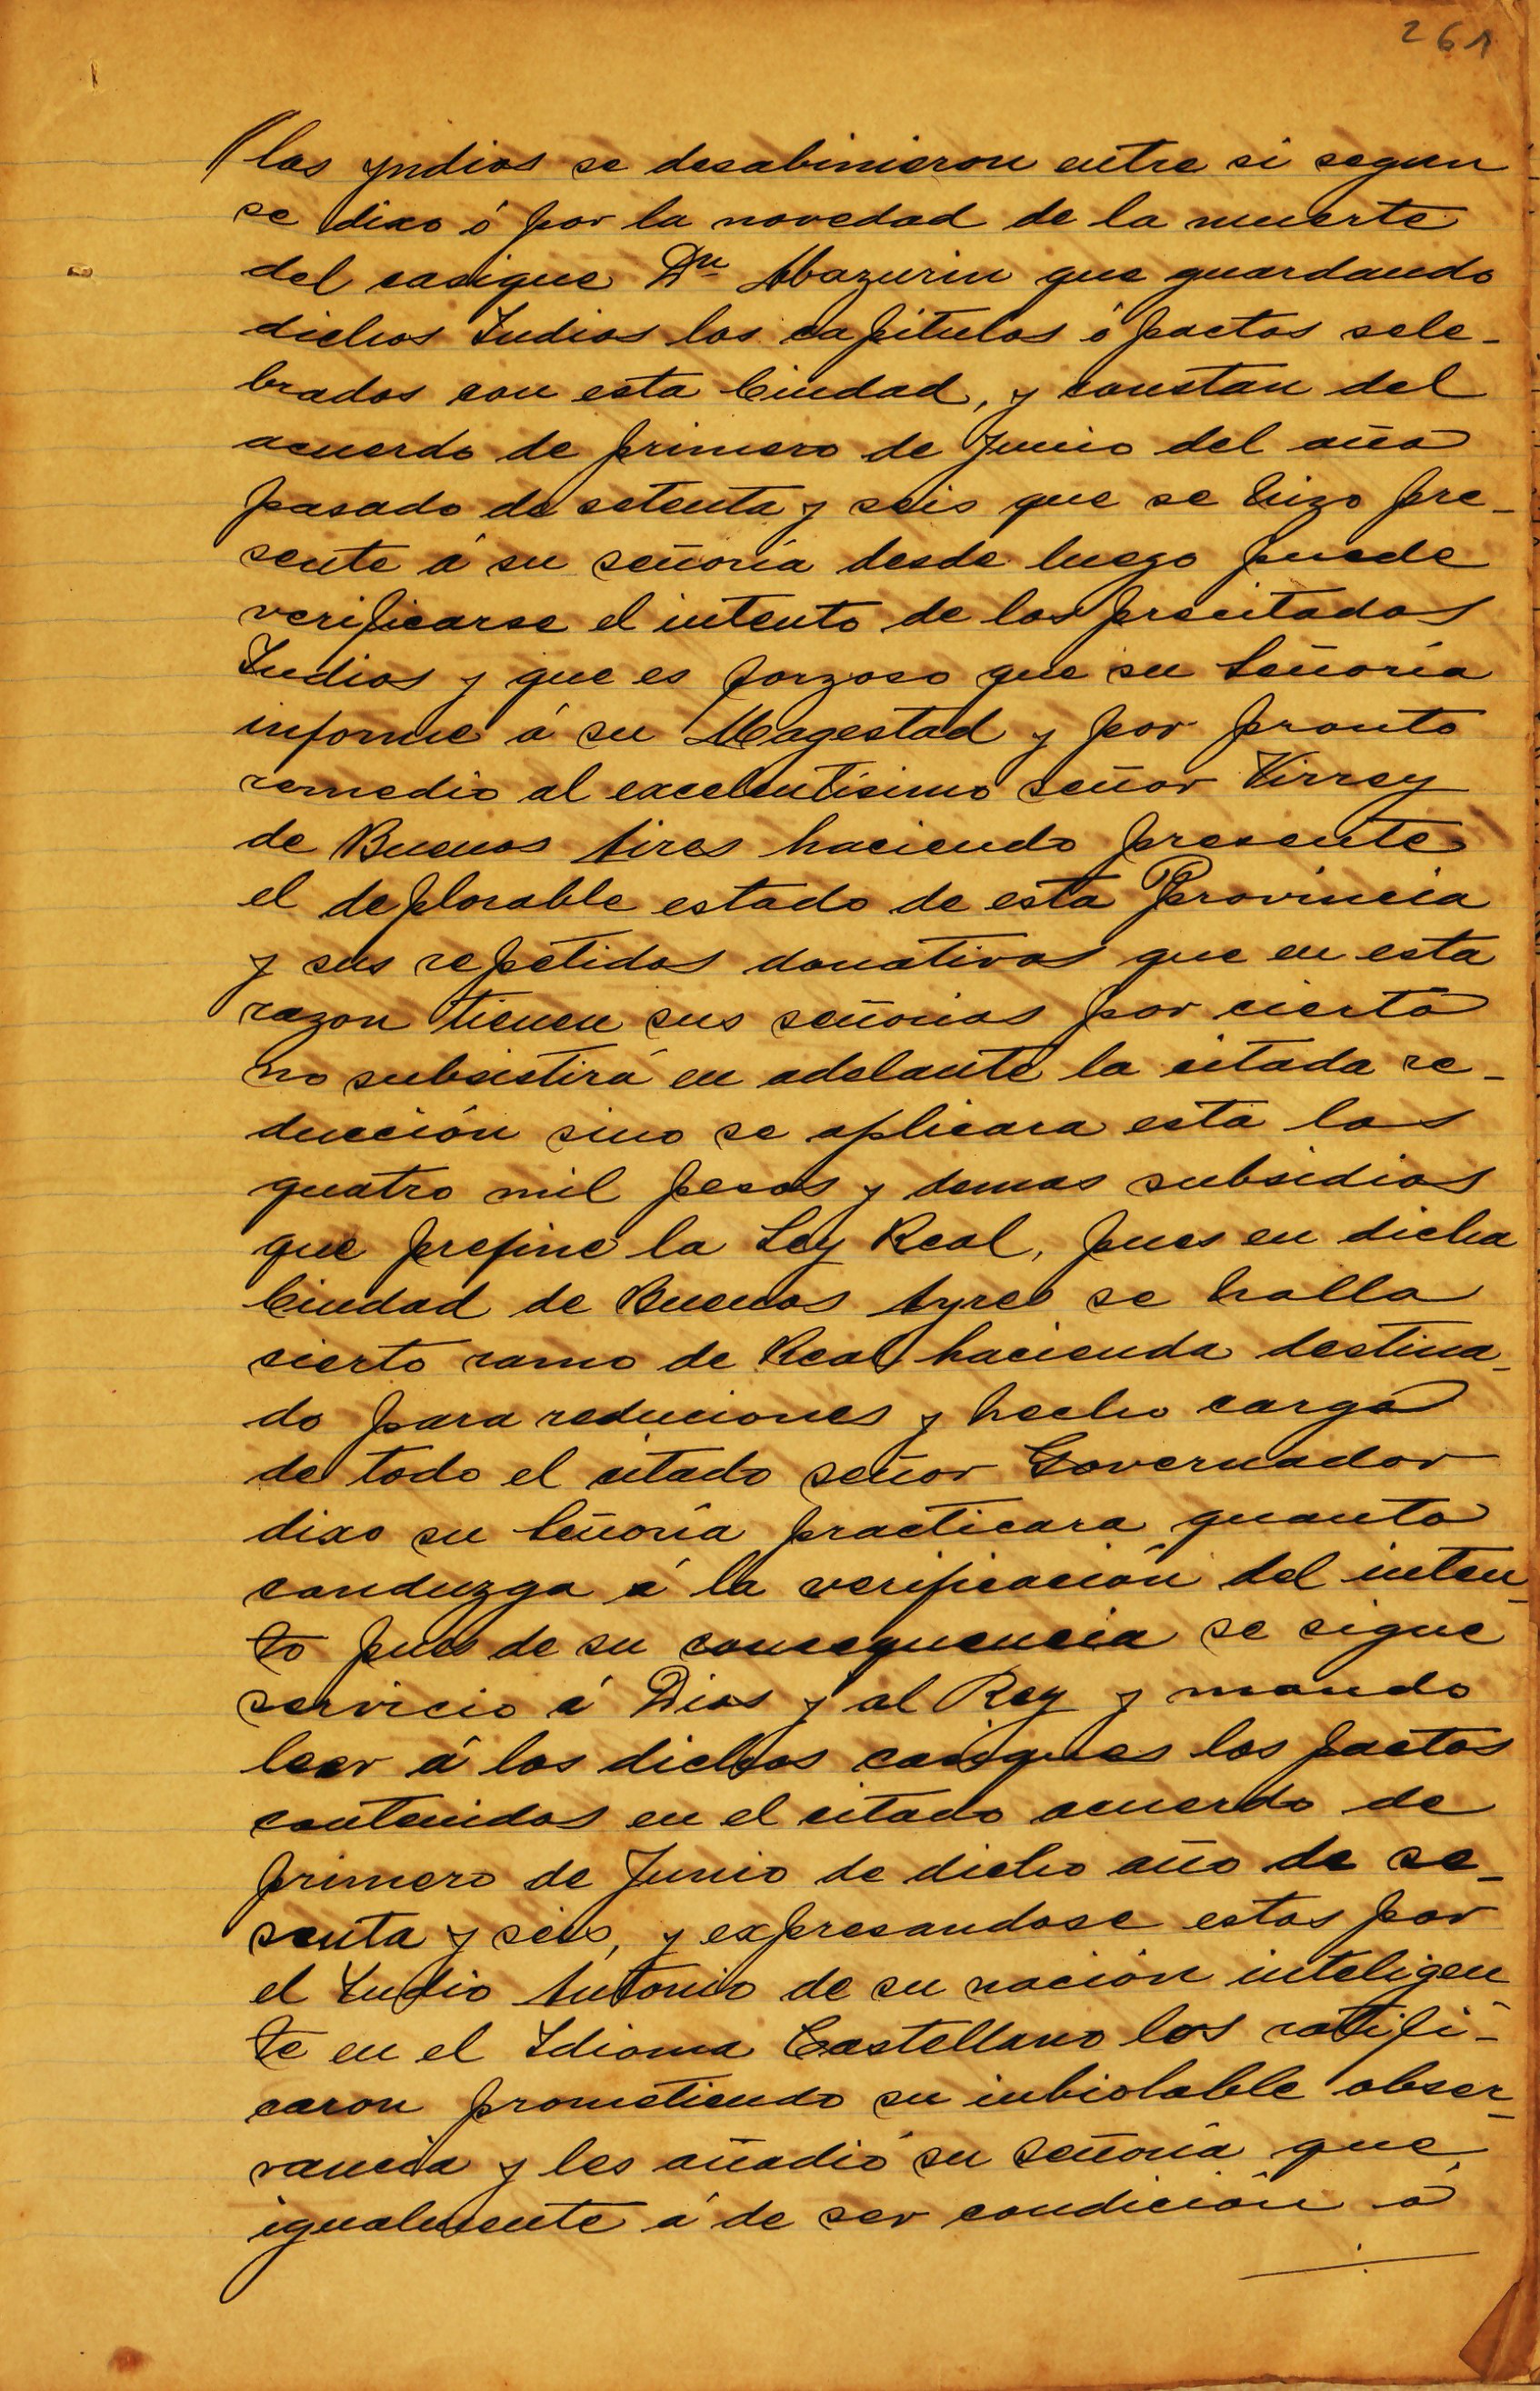 261
los yndios se desabinieron entre si segun
se dixo ó por la novedad de la muerte
del casique Dn Mazurin que guardando
dichos Indios los capitulos ó pactos sele-
brados con esta Ciudad, y constan del
acuerdo de primero de Junio del año
pasado de setenta y seis que se hizo pre-
sente á su señoria desde luego puede
verificarse el intento de los precitados
Indios y que es forzoso que su Señoria
informe á su Magestad y por pronto
remedio al excelentísimo señor Virrey
de Buenos Aires haciendo presente
el deplorable estado de esta Provincia
y sus repetidos donativos que en esta
razon tienen sus señorias por cierto
no subsistirá en adelante la citada re-
ducción sino se aplicara esta los
quatro mil pesos y demas subsidios
que prefine la Ley Real, pues en dicha
Ciudad de Buenos Ayres se halla
sierto ramo de Real hacienda destina-
do para reduciones y hecho cargo
de todo el citado señor Governador
dixo su Señoría practicara quanto
conduzga á la verificación del inten-
to pues de su consequencia se sigue
servicio á Dios y al Rey y mando
leer á los dichos casiques los pactos
contenidos en el citado acuerdo de
primero de Junio de dicho año de se-
senta y seis, y expresandose estos por
el Indio Antonio de su nación inteligen
te en el Idioma Castellano los ratifi-
caron prometiendo su inbiolable obser-
vancia y les añadió su Señoría que
igualmente á de ser condición ó